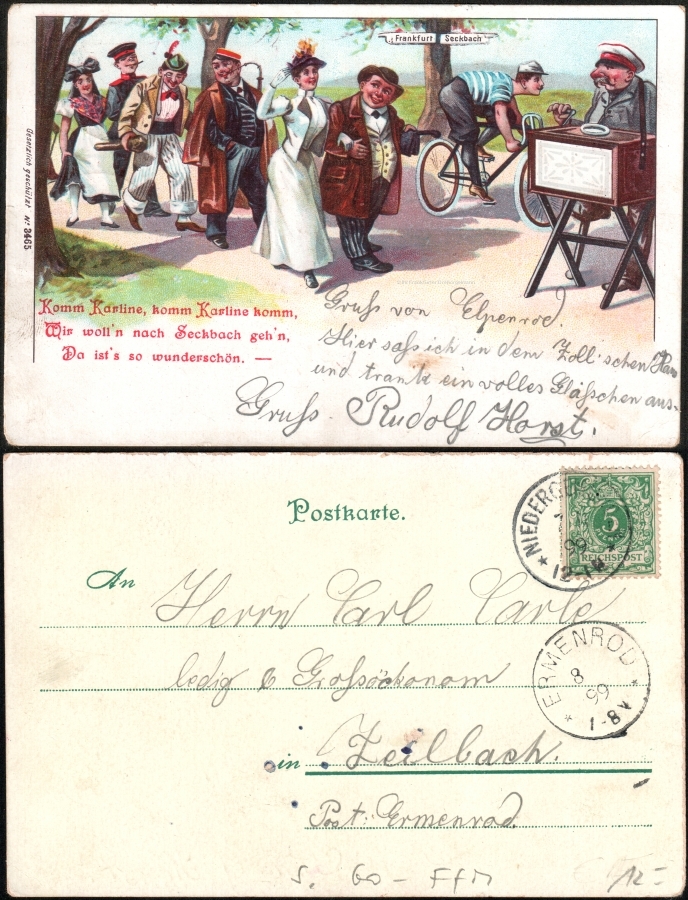 Frankfurt Seckbach
Gesetzlich geschützt No 3465
Komm Karline, komm Karline komm,
Wir woll'n nach Seckbach geh'n,
Da ist's so wunderschön. —
Gruss von Elpenrod.
Hier sass ich in dem Zoll'schen Haus
und trank ein volles Gläschen aus.
Gruss Rudolf Horst.
Postkarte.
5
REICHSPOST
99
12-1N
An
Herrn Carl Carle
ERMENROD
8
99
7-8V
ledig Grossökonom
in Zeilbach.
Post: Ermenrod
S. 60 - FFM
12-